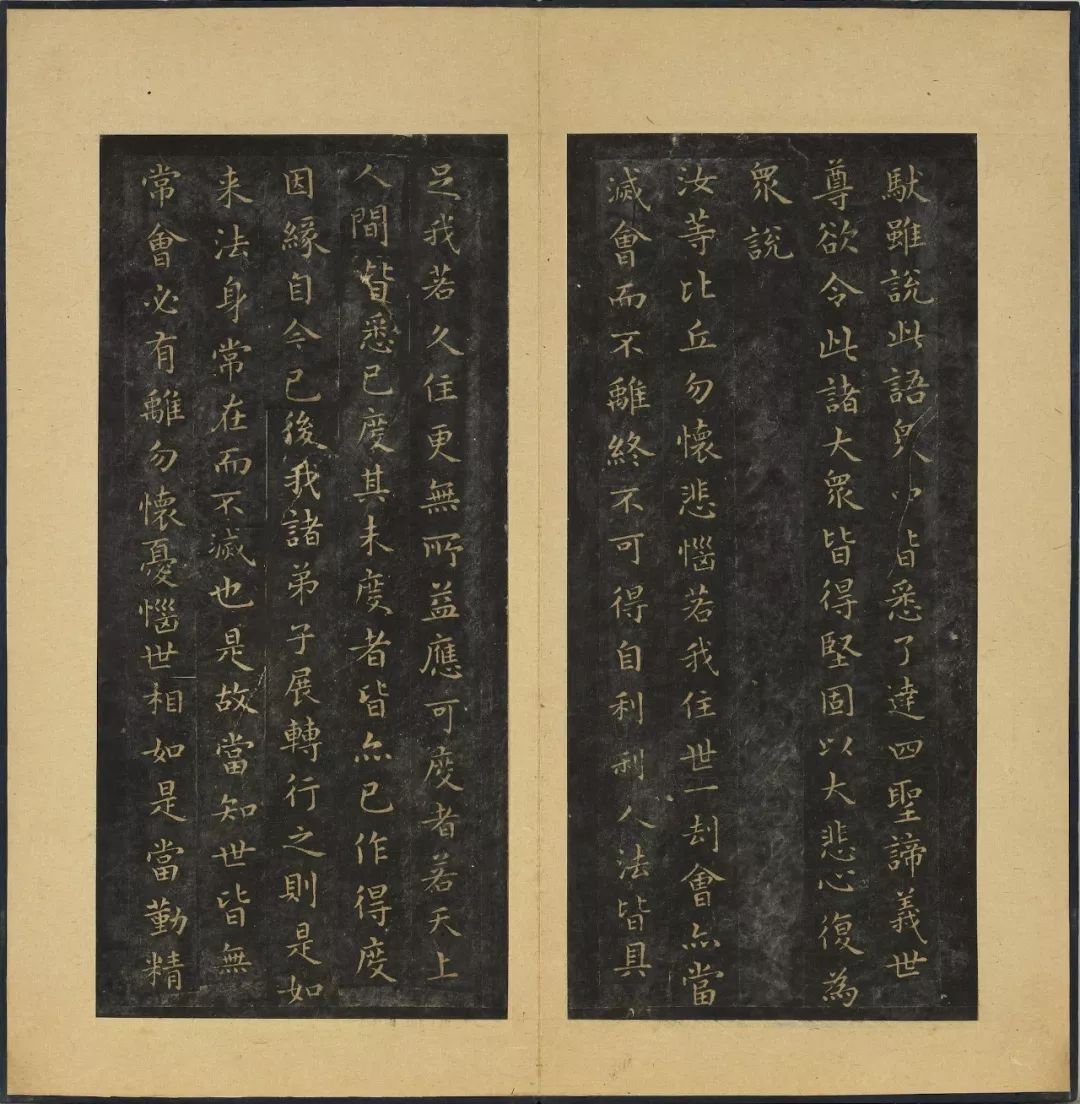 馱雖說此語衆中皆悉了達四聖諦義世
尊欲令此諸大衆皆得堅固以大悲心復為
衆說
汝等比丘勿懷悲惱若我住世一刧會亦當
滅會而不離終不可得自利利人法皆具
足我若久住更無所益應可度者若天上
人間皆悉已度其未度者皆亦已作得度
因緣自今已後我諸弟子展轉行之則是如
来法身常在而不滅也是故當知世皆無
常會必有離勿懷憂惱世相如是當勤精